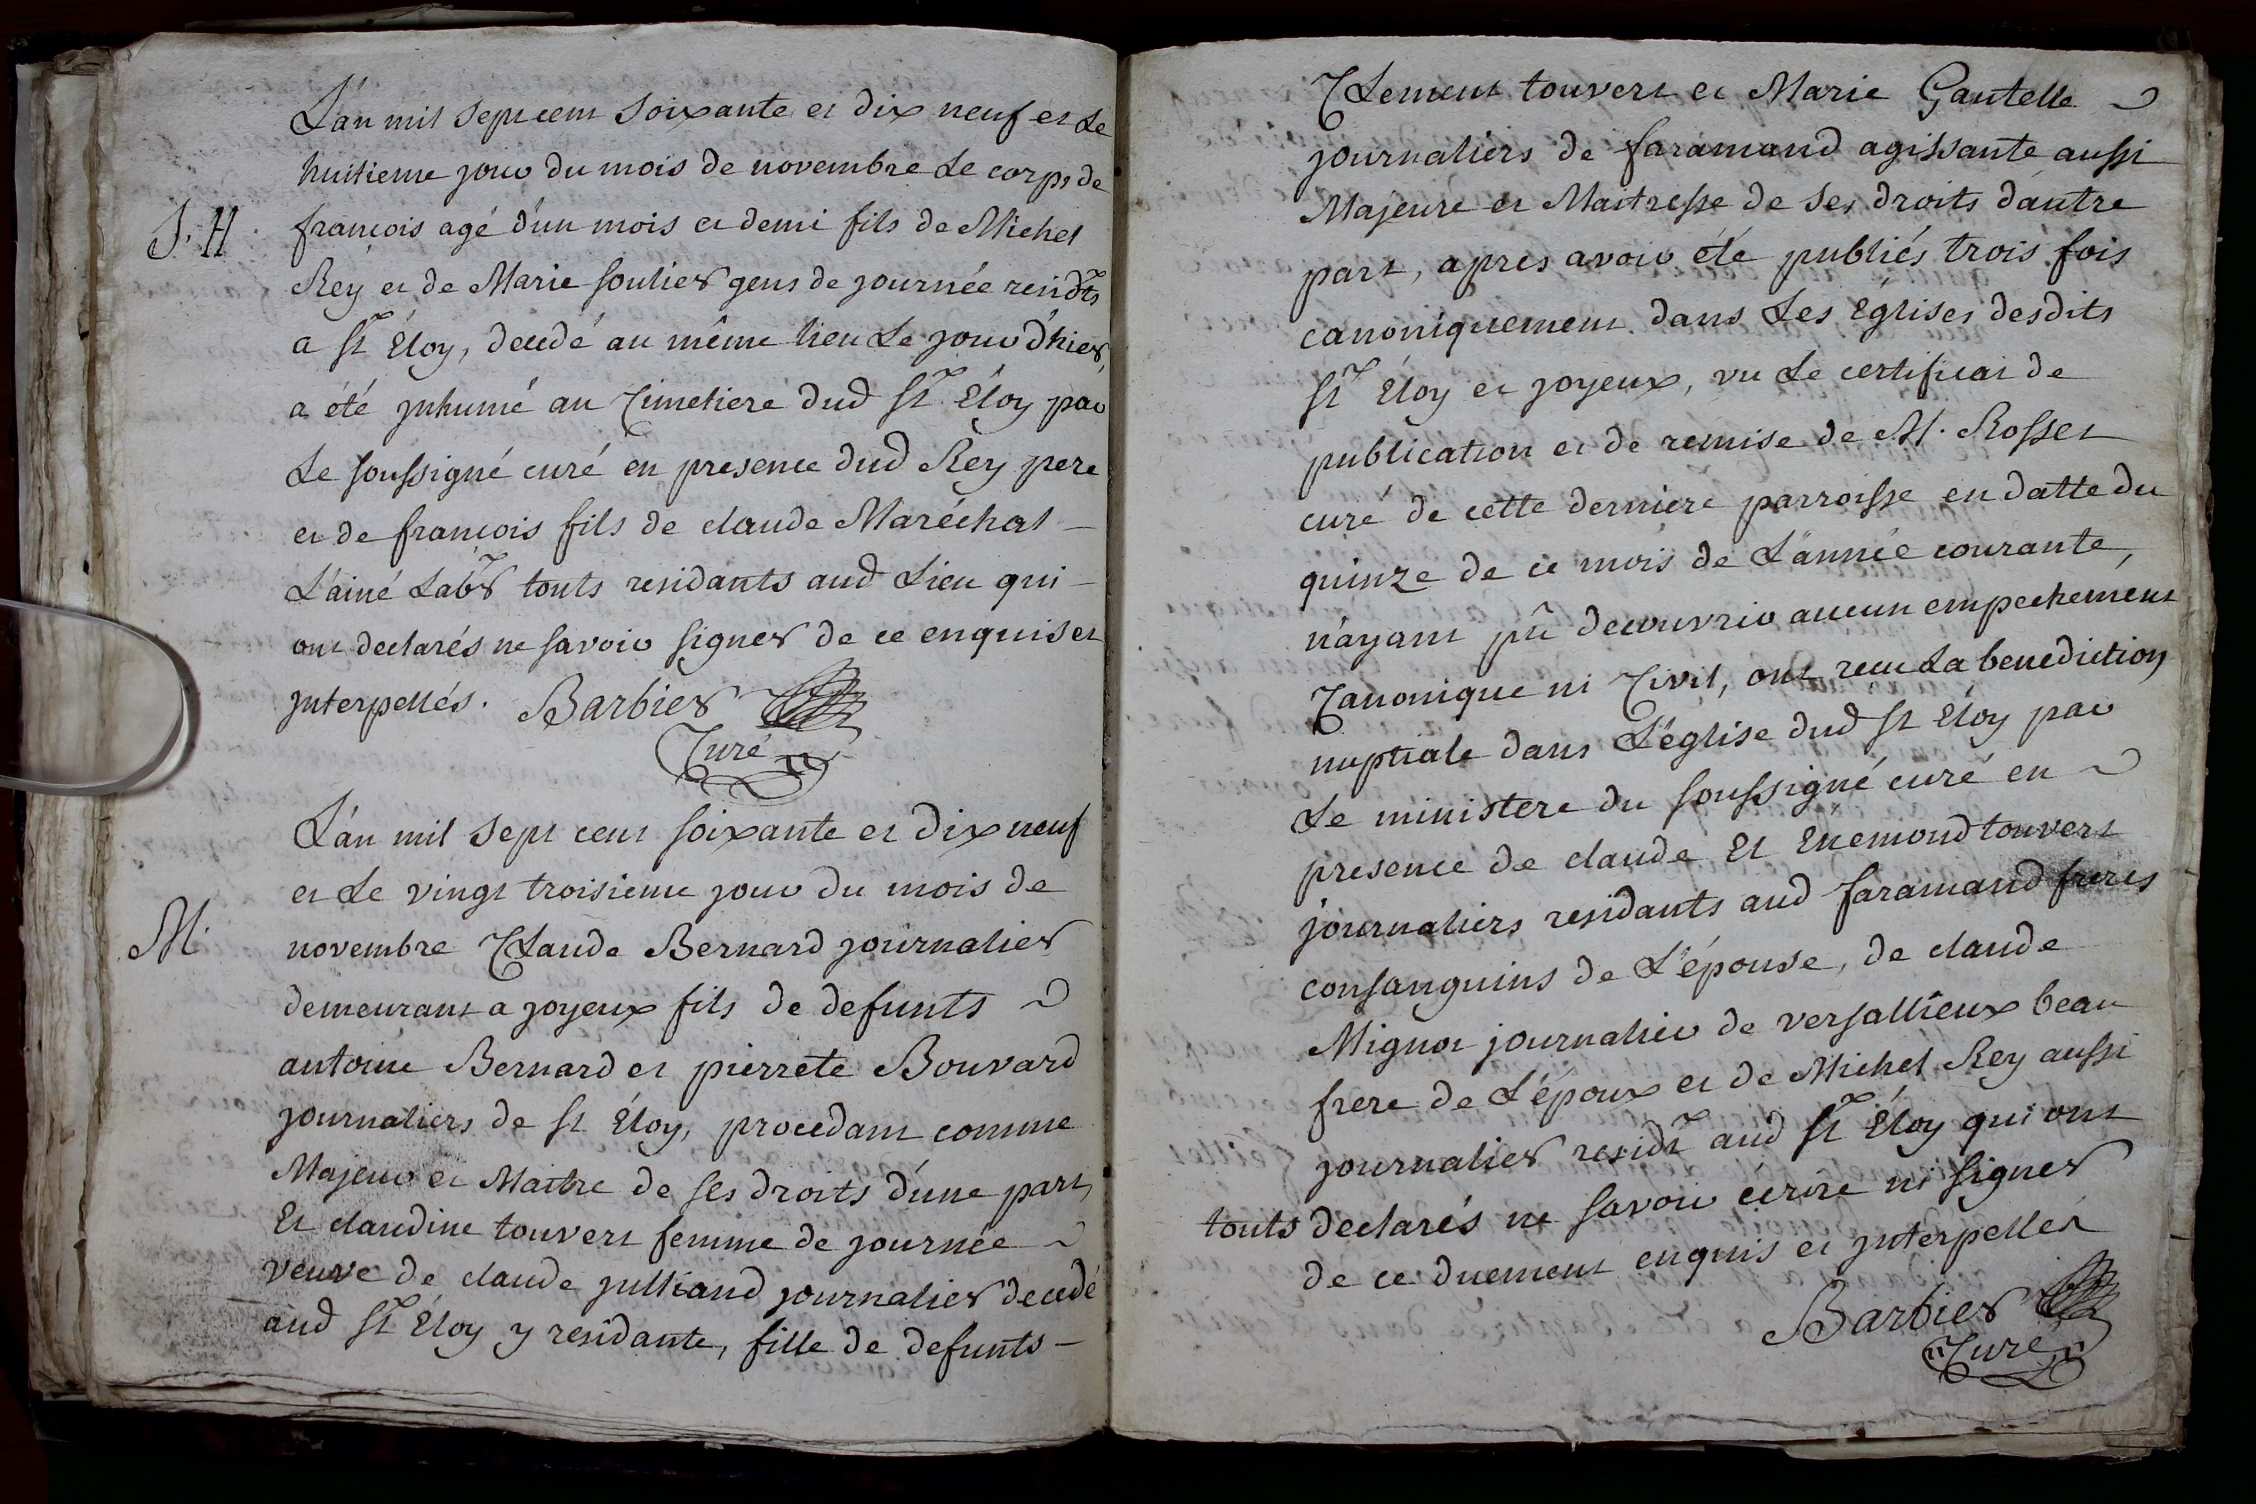 L'an mil sept cent soixante et dix neuf et Le
huitieme jour du mois de novembre Le corps de
S. H. françois agé d'un mois et demi fils de Michel
Rey et de Marie soulier gens de journée residts
a St Éloy, decedé au même lieu Le jour d'hier,
a été jnhumé au Cimetiere dud St Éloy par
Le soussigné curé en presence dud Rey pere
et de francois fils de claude Maréchal -
L'ainé Labr touts residants aud Lieu qui -
ont declarés ne savoir signer de ce enquis et
jnterpellés. Barbier
Curé
L'an mil sept cent soixante et dix neuf
et Le vingt troisieme jour du mois de
M. novembre Claude Bernard journalier
demeurant a joyeux fils de defunts
antoine Bernard et pierrete Bouvard
journaliers de St Éloy, procedant comme
Majeur et Maitre de ses droits d'une part,
Et claudine touvert femme de journée
veuve de claude julliand journalier decedé
aud St Éloy y residante, fille de defunts -
Clement touvert et Marie Gautelle
journaliers de faramand agissante aussi
Majeure et Maitresse de ses droits d'autre
part, apres avoir été publiés trois fois
canoniquement dans Les Églises desdits
St Éloy et joyeux, vu Le certificat de
publication et de remise de M. Rosset
curé de cette derniere parroisse en datte du
quinze de ce mois de L'année courante,
n'ayant pû decouvrir aucun empechement
Canonique ni Civil, ont recu La benediction
nuptiale dans L'église dud St Éloy par
Le ministere du soussigné curé en
presence de claude Et Enemond touvert
journaliers residants aud faramand freres
consanguins de L'épouse, de claude
Mignot journalier de versallieux beau
frere de L'époux et de Michel Rey aussi
journalier residt aud St Éloy qui ont
touts declarés ne savoir écrire ni signer
de ce duement enquis et jnterpellés
Barbier
Curé